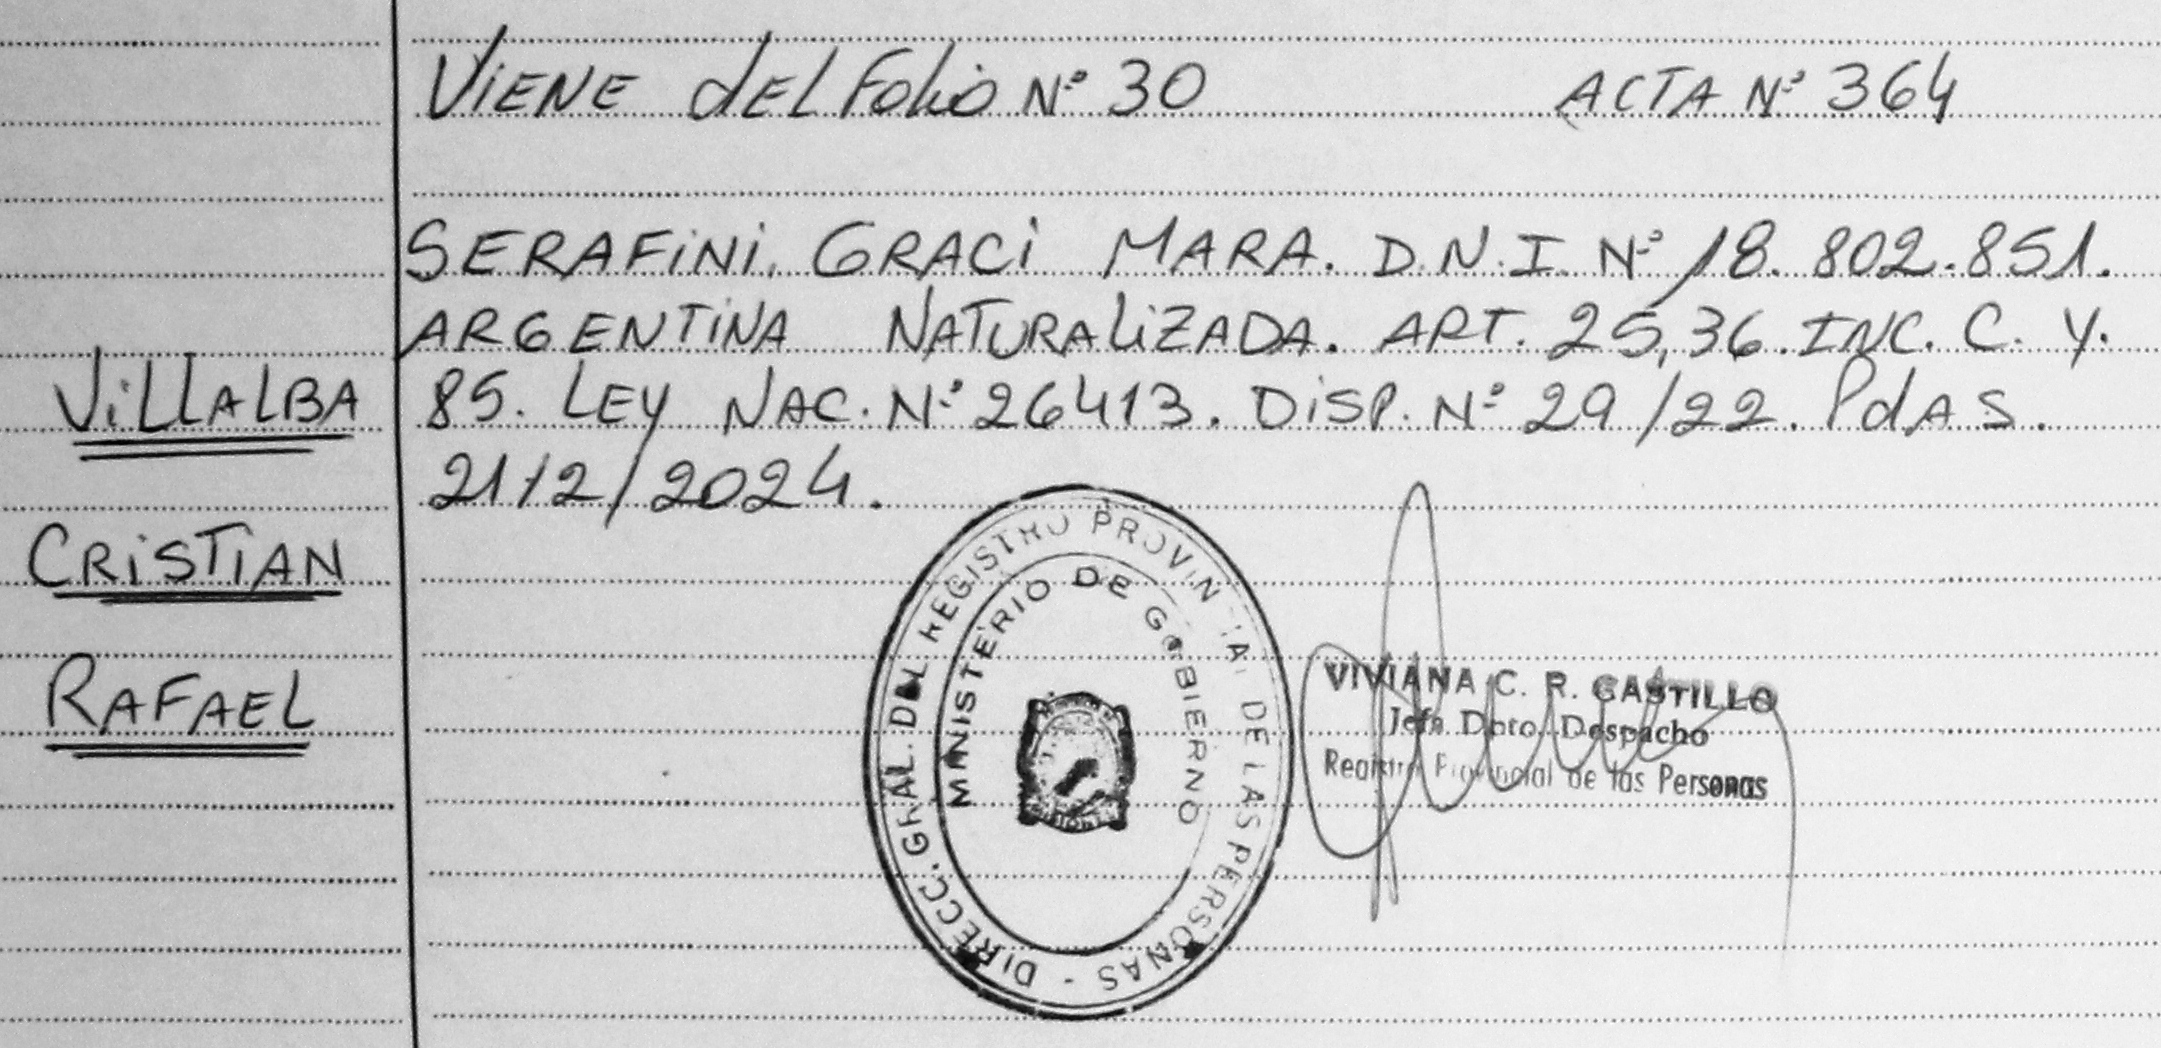 VIENE dEL Folio Nº 30 ACTA Nº 364
SERAFINI. GRACI MARA. D.N.I. Nº 18.802.851.
ARGENTINA NATURALIZADA. ART. 25,36.INC. C. Y.
85. LEY NAC. Nº 26413. DISP. Nº 29/22. PdAS.
21/2/2024.
VILLALBA
CRISTIAN
RAFAEL
DIRECC. GRAL. DEL REGISTRO PROVINCIAL DE LAS PERSONAS -
MINISTERIO DE GOBIERNO
VIVIANA C. R. CASTILLO
Jefa Dpto. Despacho
Registro Provincial de las Personas